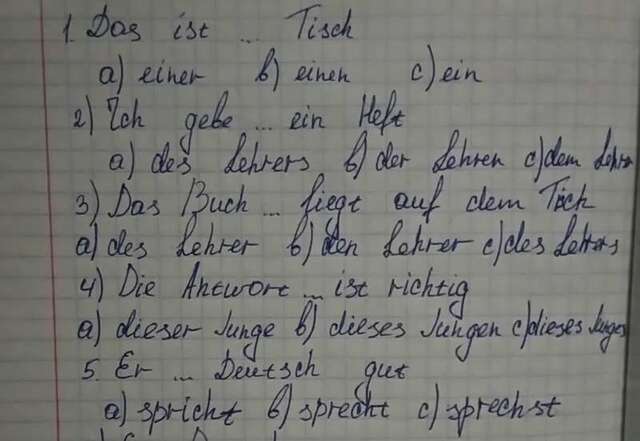 1. Das ist ... Tisch
a) einer b) einen c) ein
2) Ich gebe ... ein Heft
a) des Lehrers b) der Lehren c) dem Lehrer
3) Das Buch ... liegt auf dem Tisch
a) des Lehrer b) den Lehrer c) des Lehrers
4) Die Antwort ... ist richtig
a) dieser Junge b) dieses Jungen c) dieses Junges
5. Er ... Deutsch gut
a) spricht b) sprecht c) sprechst